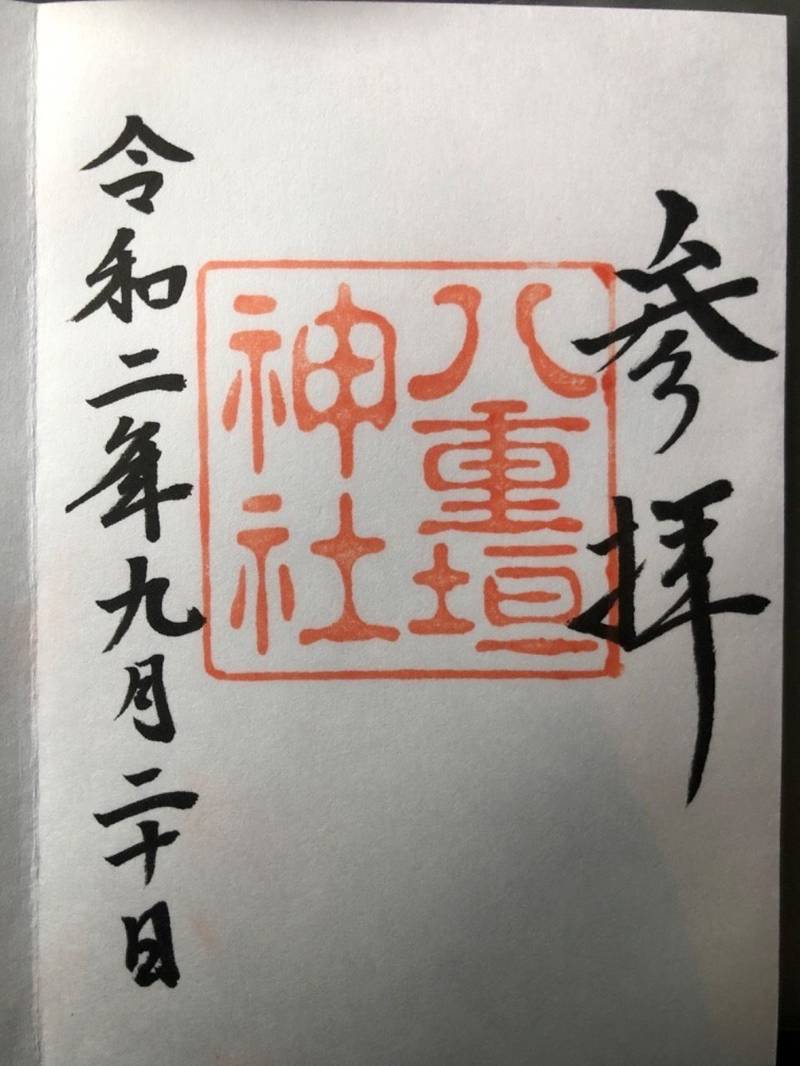 参拝
八重垣
神社
令和二年九月二十日